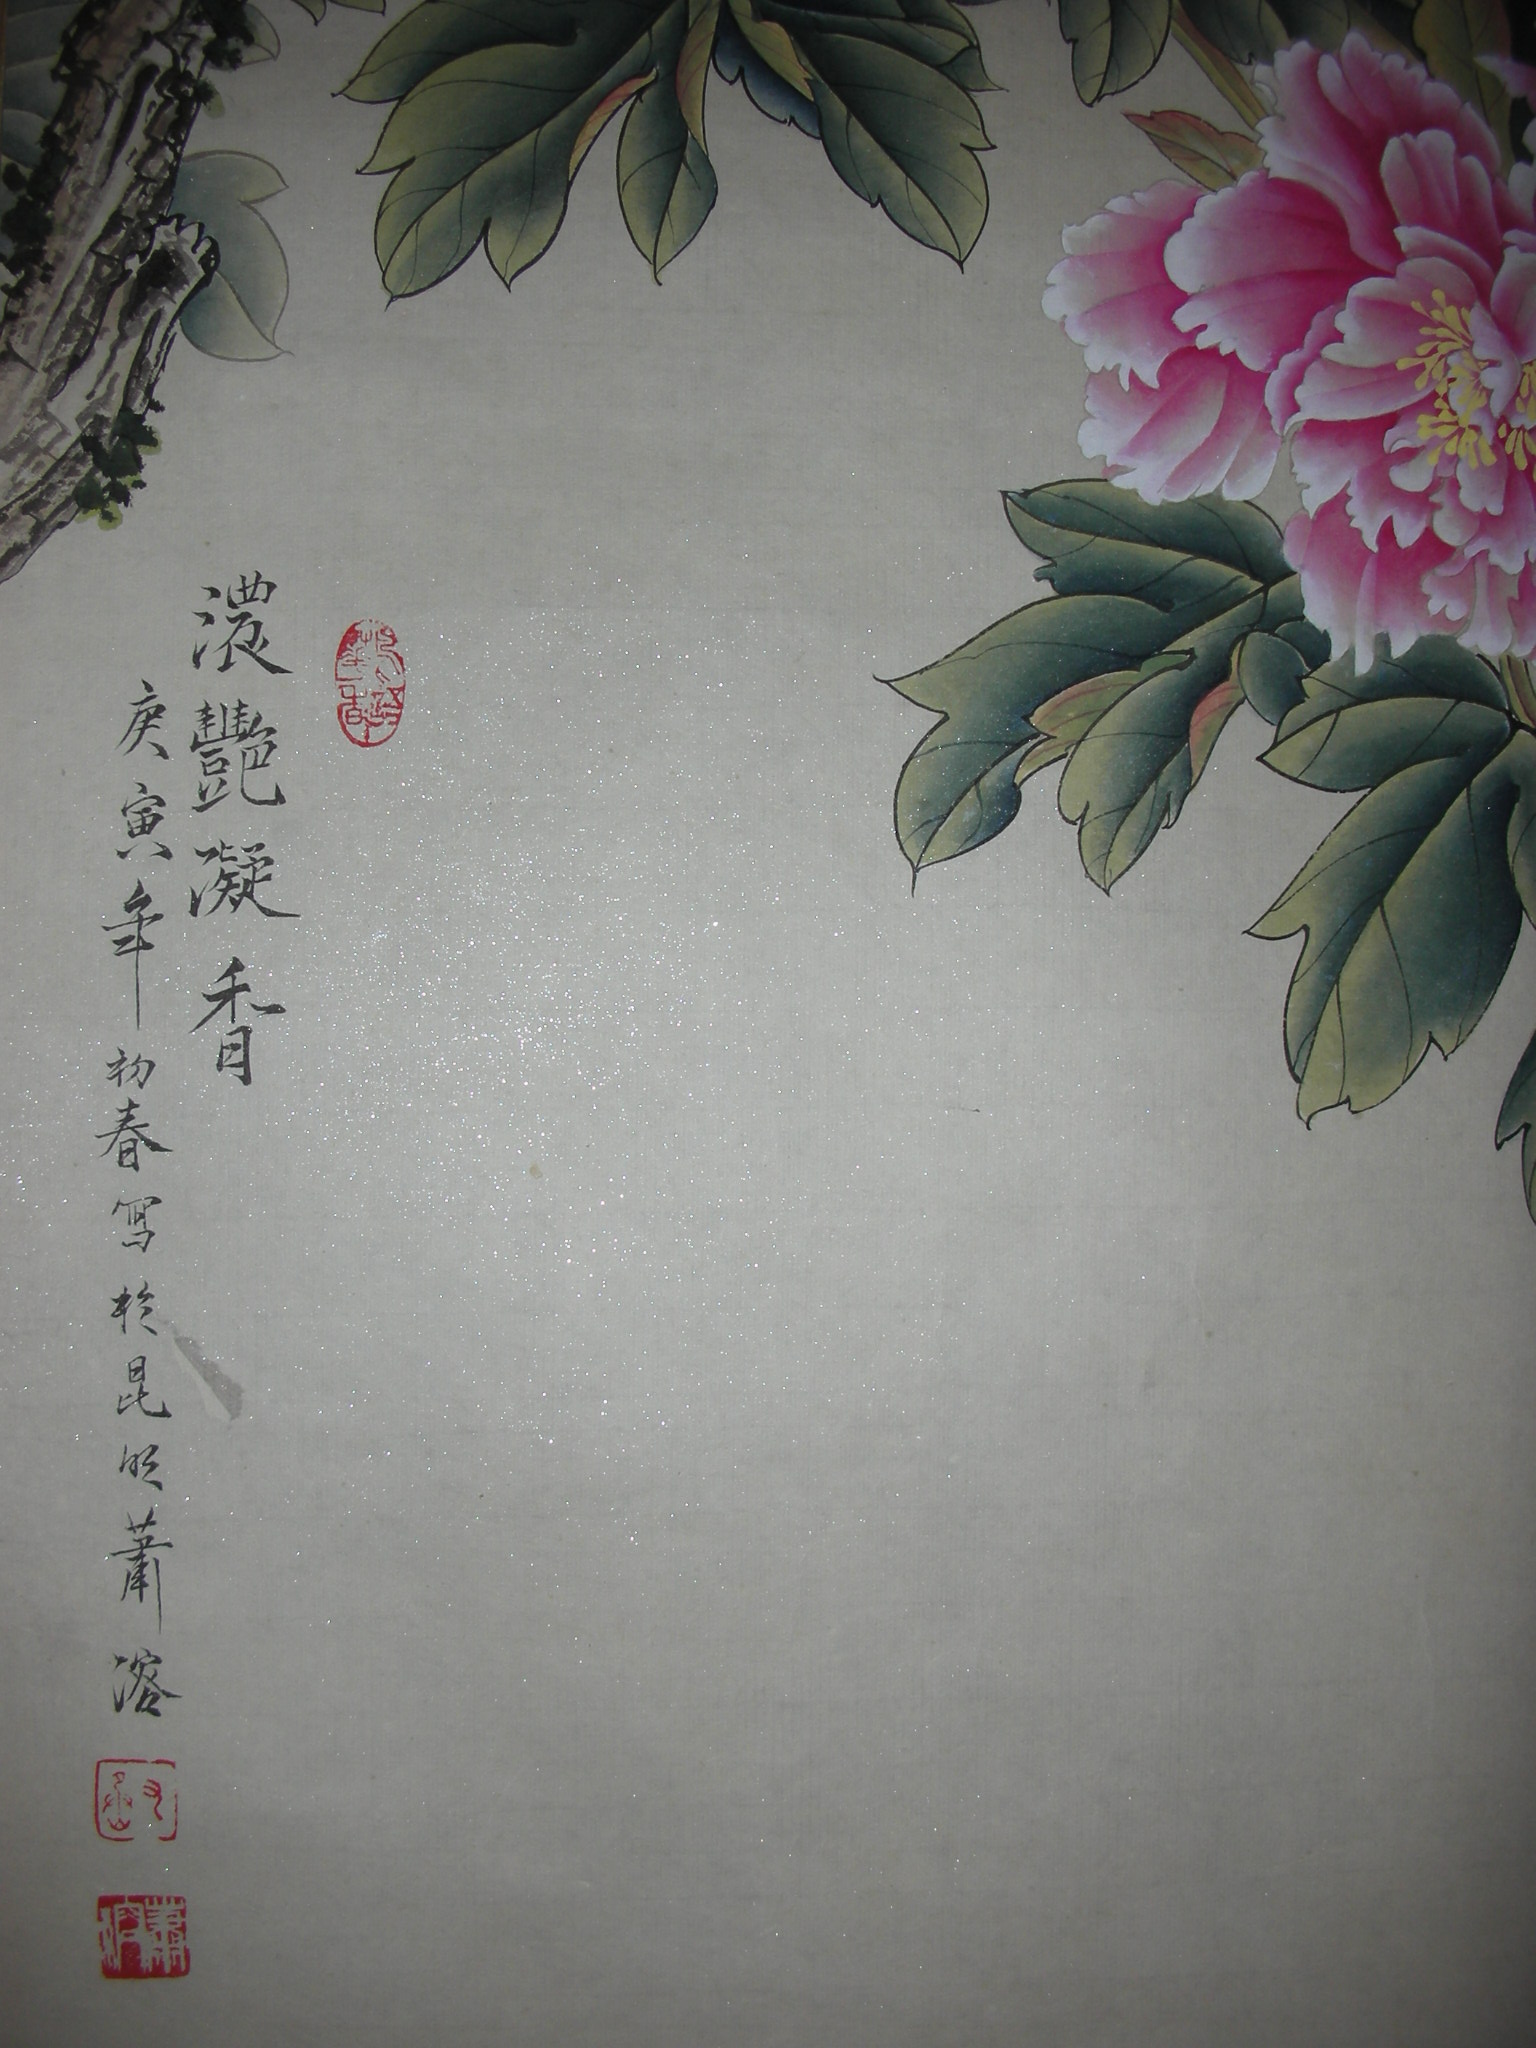 濃艷凝香
庚寅年初春寫於昆明蕭溶
蕭溶